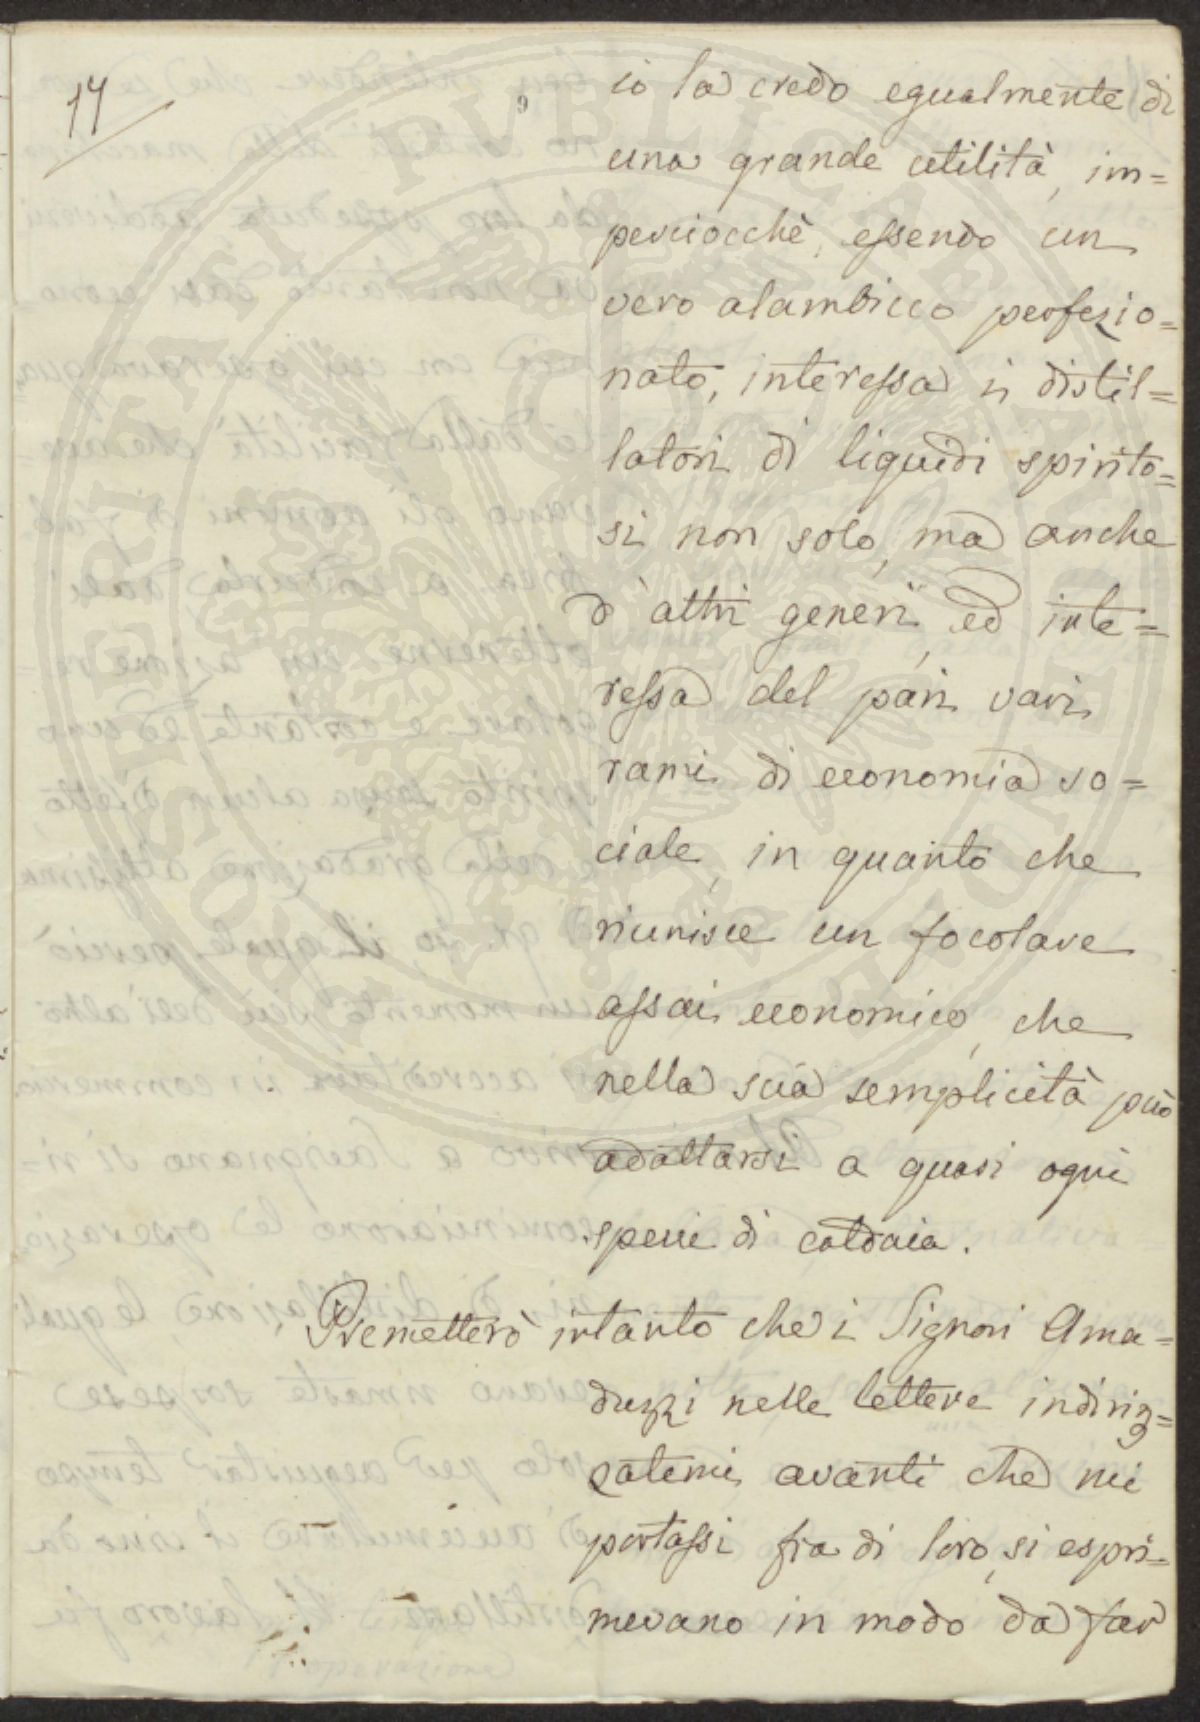 17
9
io la credo egualmente di
una grande utilità, im=
perciocchè, essendo un
vero alambicco perfezio=
nato, interessa i distil=
latori di liquidi spirito=
si non solo, ma anche
d'altri generi, ed inte=
ressa del pari vari
rami di economia so=
ciale, in quanto che
riunisce un focolare
assai economico, che
nella sua semplicità può
adattarsi a quasi ogni
specie di caldaia.
Premetterò intanto che i Signori Ama=
duzzi nelle lettere indiriz=
zatemi avanti che mi
portassi fra di loro, si espri=
mevano in modo da far